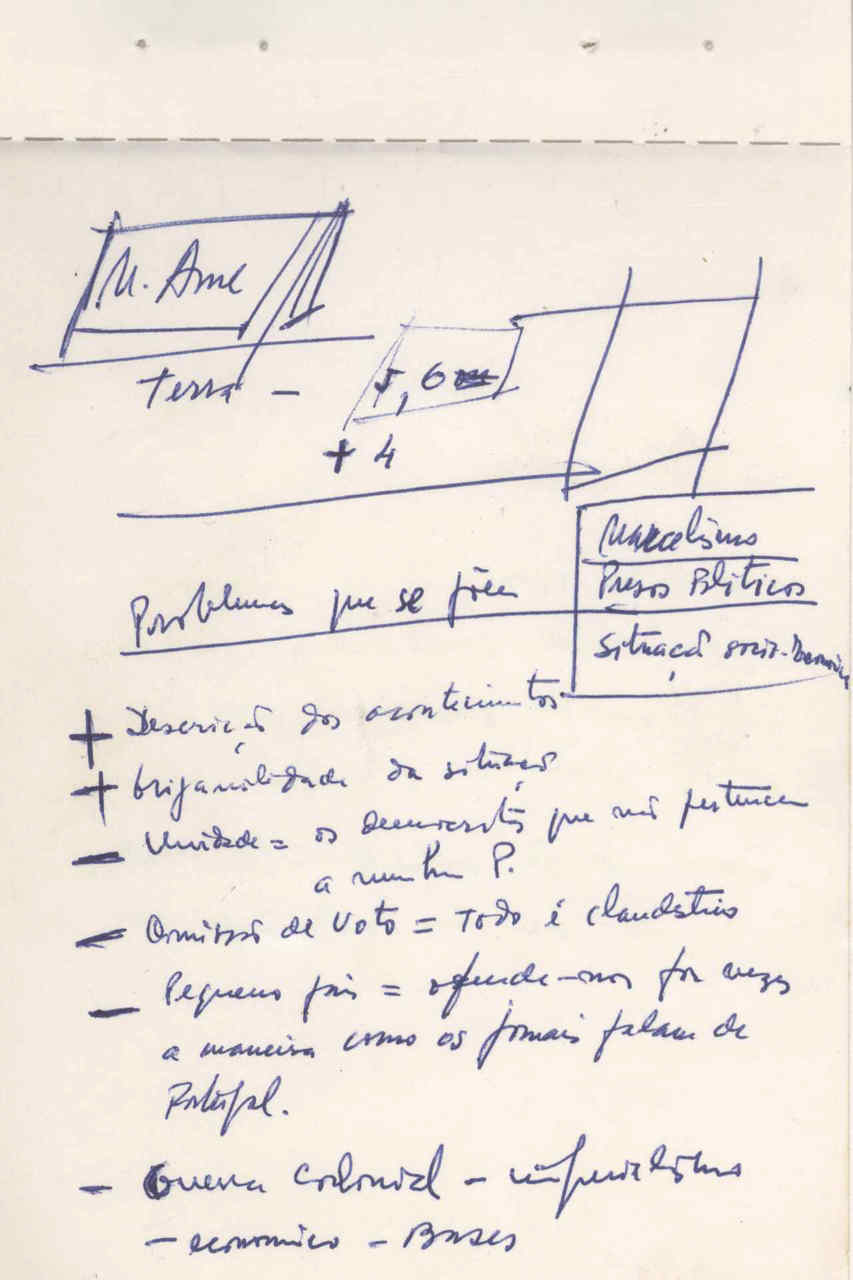 Terra -
5,6
+ 4
Marcelismo
Presos Políticos
Situação socio-
Problemas que se põem
+ Descrição dos acontecimentos
+ Originalidade da situação
- Unidade = os democratas que não pertencem
a nenhum P.
- Omissão de voto = Todo é clandestino
- Pequeno país = ofende-nos por vezes
a maneira como os jornais falam de
Portugal.
- Guerra colonial - imperialismo
- economico - Bases